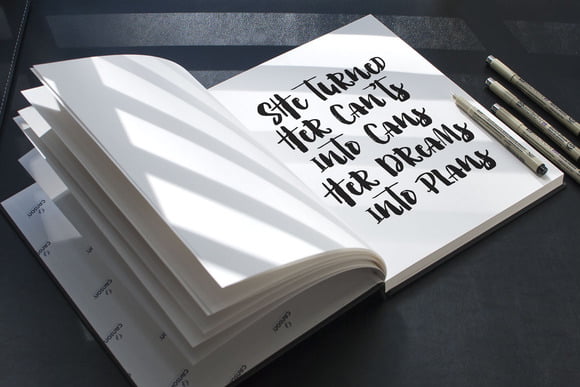 She turned
her can'ts
into cans
her dreams
into plans
canson
canson
canson
canson
canson
canson